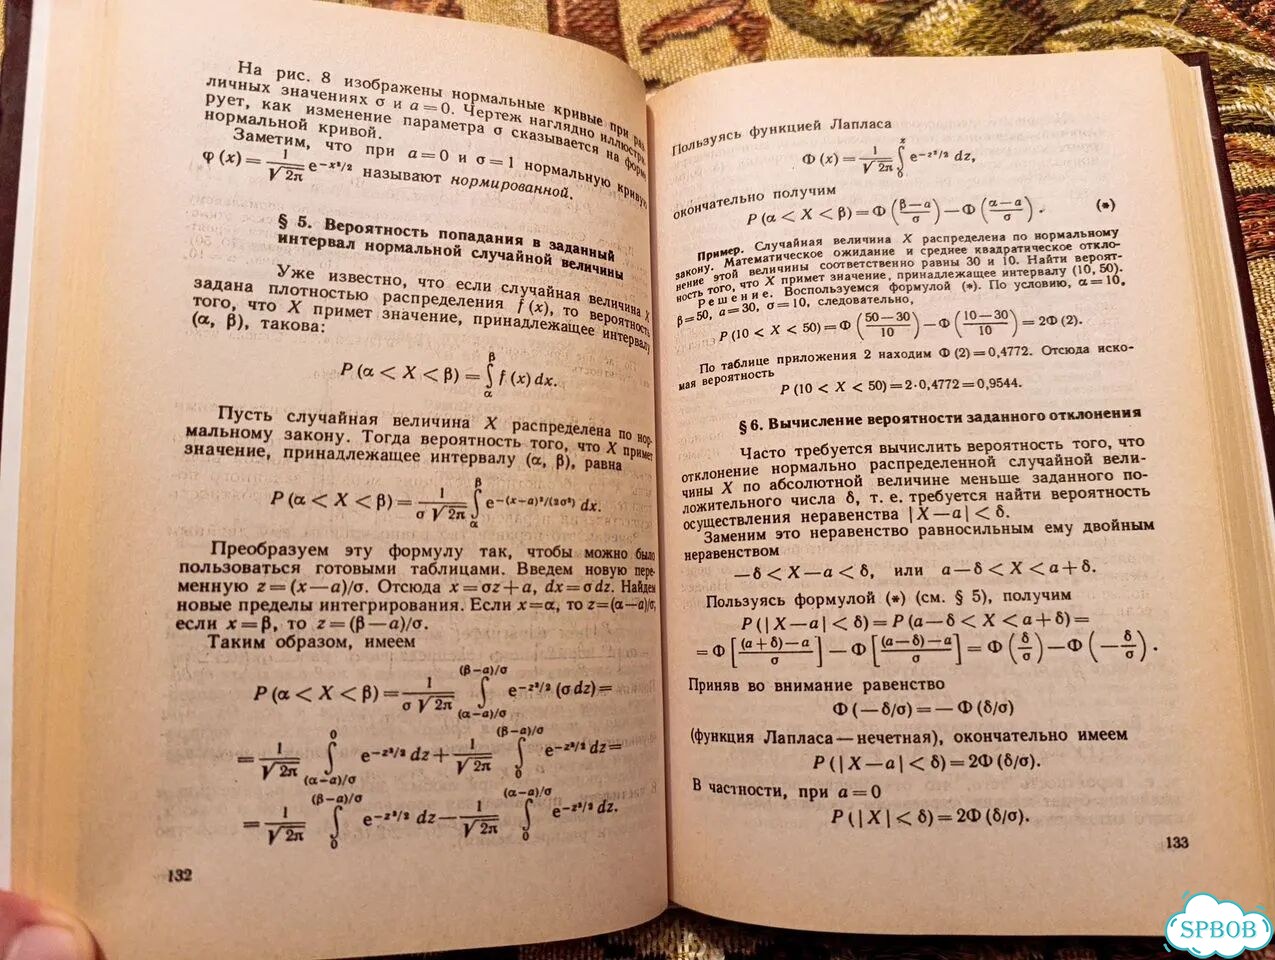 На рис. 8 изображены нормальные кривые при раз
личных значениях σ и a = 0. Чертеж наглядно иллюстри
рует, как изменение параметра σ сказывается на форме
нормальной кривой.
Заметим, что при a = 0 и σ = 1 нормальную кривую
φ (x) = 1/√2π e^(−x²/2) называют нормированной.
§ 5. Вероятность попадания в заданный
интервал нормальной случайной величины
Уже известно, что если случайная величина X
задана плотностью распределения f (x), то вероятность
того, что X примет значение, принадлежащее интервалу
(α, β), такова:
P (α < X < β) = ∫_α^β f (x) dx.
Пусть случайная величина X распределена по нор-
мальному закону. Тогда вероятность того, что X примет
значение, принадлежащее интервалу (α, β), равна
P (α < X < β) = 1/(σ √2π) ∫_α^β e^(−(x−a)²/(2σ²)) dx.
Преобразуем эту формулу так, чтобы можно было
пользоваться готовыми таблицами. Введем новую пере-
менную z = (x — a)/σ. Отсюда x = σz + a, dx = σ dz. Найдем
новые пределы интегрирования. Если x = α, то z = (α — a)/σ;
если x = β, то z = (β — a)/σ.
Таким образом, имеем
P (α < X < β) = 1/(σ √2π) ∫_((α−a)/σ)^((β−a)/σ) e^(−z²/2) (σ dz) =
= 1/√2π ∫_((α−a)/σ)^0 e^(−z²/2) dz + 1/√2π ∫_0^((β−a)/σ) e^(−z²/2) dz =
= 1/√2π ∫_0^((β−a)/σ) e^(−z²/2) dz — 1/√2π ∫_0^((α−a)/σ) e^(−z²/2) dz.
132
Пользуясь функцией Лапласа
Φ (x) = 1/√2π ∫_0^x e^(−z²/2) dz,
окончательно получим
P (α < X < β) = Φ ((β—a)/σ) — Φ ((α—a)/σ). (*)
Пример. Случайная величина X распределена по нормальному
закону. Математическое ожидание и среднее квадратическое откло-
нение этой величины соответственно равны 30 и 10. Найти вероят-
ность того, что X примет значение, принадлежащее интервалу (10, 50).
Решение. Воспользуемся формулой (*). По условию, α = 10,
β = 50, a = 30, σ = 10, следовательно,
P (10 < X < 50) = Φ ((50—30)/10) — Φ ((10—30)/10) = 2Φ (2).
По таблице приложения 2 находим Φ (2) = 0,4772. Отсюда иско-
мая вероятность
P (10 < X < 50) = 2·0,4772 = 0,9544.
§ 6. Вычисление вероятности заданного отклонения
Часто требуется вычислить вероятность того, что
отклонение нормально распределенной случайной вели-
чины X по абсолютной величине меньше заданного по-
ложительного числа δ, т. е. требуется найти вероятность
осуществления неравенства |X — a| < δ.
Заменим это неравенство равносильным ему двойным
неравенством
—δ < X — a < δ, или a — δ < X < a + δ.
Пользуясь формулой (*) (см. § 5), получим
P (|X — a| < δ) = P (a — δ < X < a + δ) =
= Φ [((a + δ) — a)/σ] — Φ [((a — δ) — a)/σ] = Φ (δ/σ) — Φ (—δ/σ).
Приняв во внимание равенство
Φ (—δ/σ) = — Φ (δ/σ)
(функция Лапласа — нечетная), окончательно имеем
P (|X — a| < δ) = 2Φ (δ/σ).
В частности, при a = 0
P (|X| < δ) = 2Φ (δ/σ).
133
SPBOB